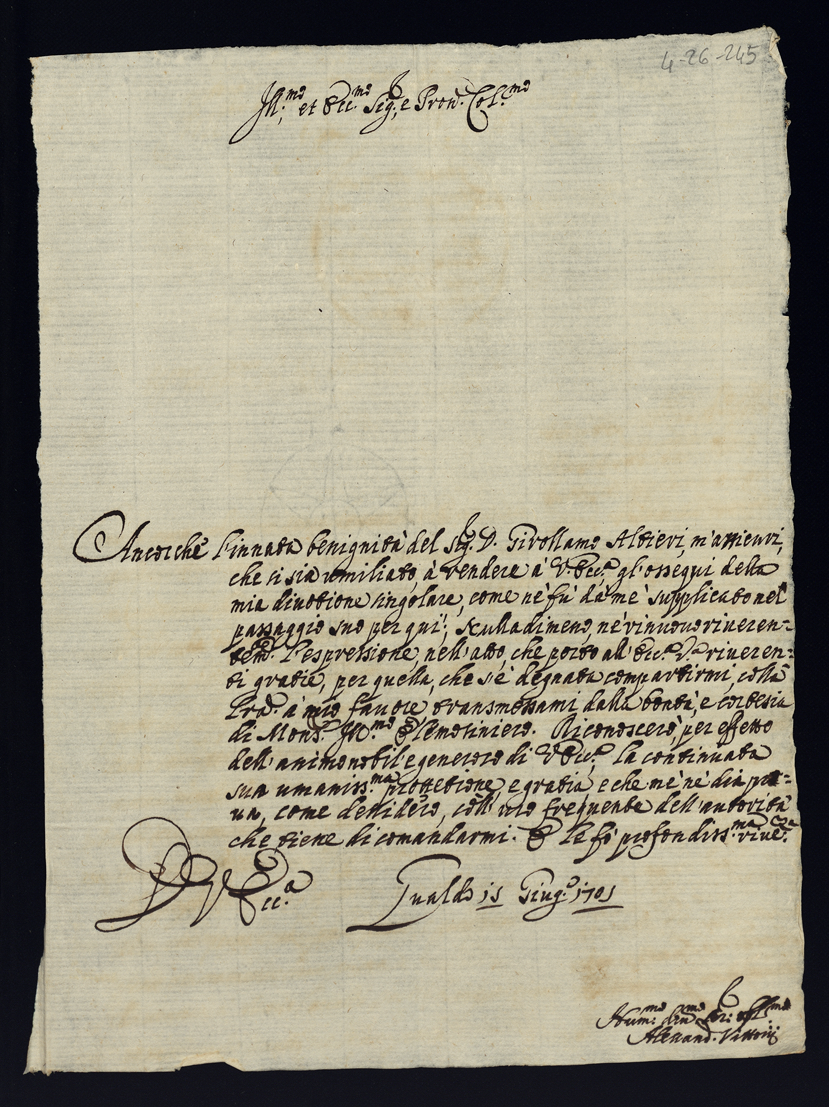 4-26-245
Ill.mo et Ecc.mo Sig.r e Pron. Col.mo
Ancorchè l'innata benignità del Sig. D. Girollamo Altieri, m'assicuri,
che si sia umiliato, à rendere à V Ecc.a gl'ossequi della
mia divotione singolare, come nè fù dà mè supplicato nel
passaggio suo per qui; Nulladimeno, nè rinuovo riveren-
tem.te l'espressione, nell'atto, che porto all'Ecc.a V.a riveren-
ti gratie, per quella, che s'è degnata compartirmi, colla
Pra. à mio favore transmessami dalla bontà, e cortesia
di Mons.r Ill.mo Elemosiniero. Riconoscerò per effetto
dell'animo nobil'e generoso di V Ecc.a la continuata
sua umaniss.ma prottetione, e gratia, e che mè nè dia pro-
va, come dessidero, coll'uso frequente dell'autorità
che tiene di comandarmi. E le fò profondiss.ma rive.za
D V Ecc.a
Gualdo 15 Giug.o 1701
Hum.mo div.mo Ser. obl.mo
Alessand. Vittorij